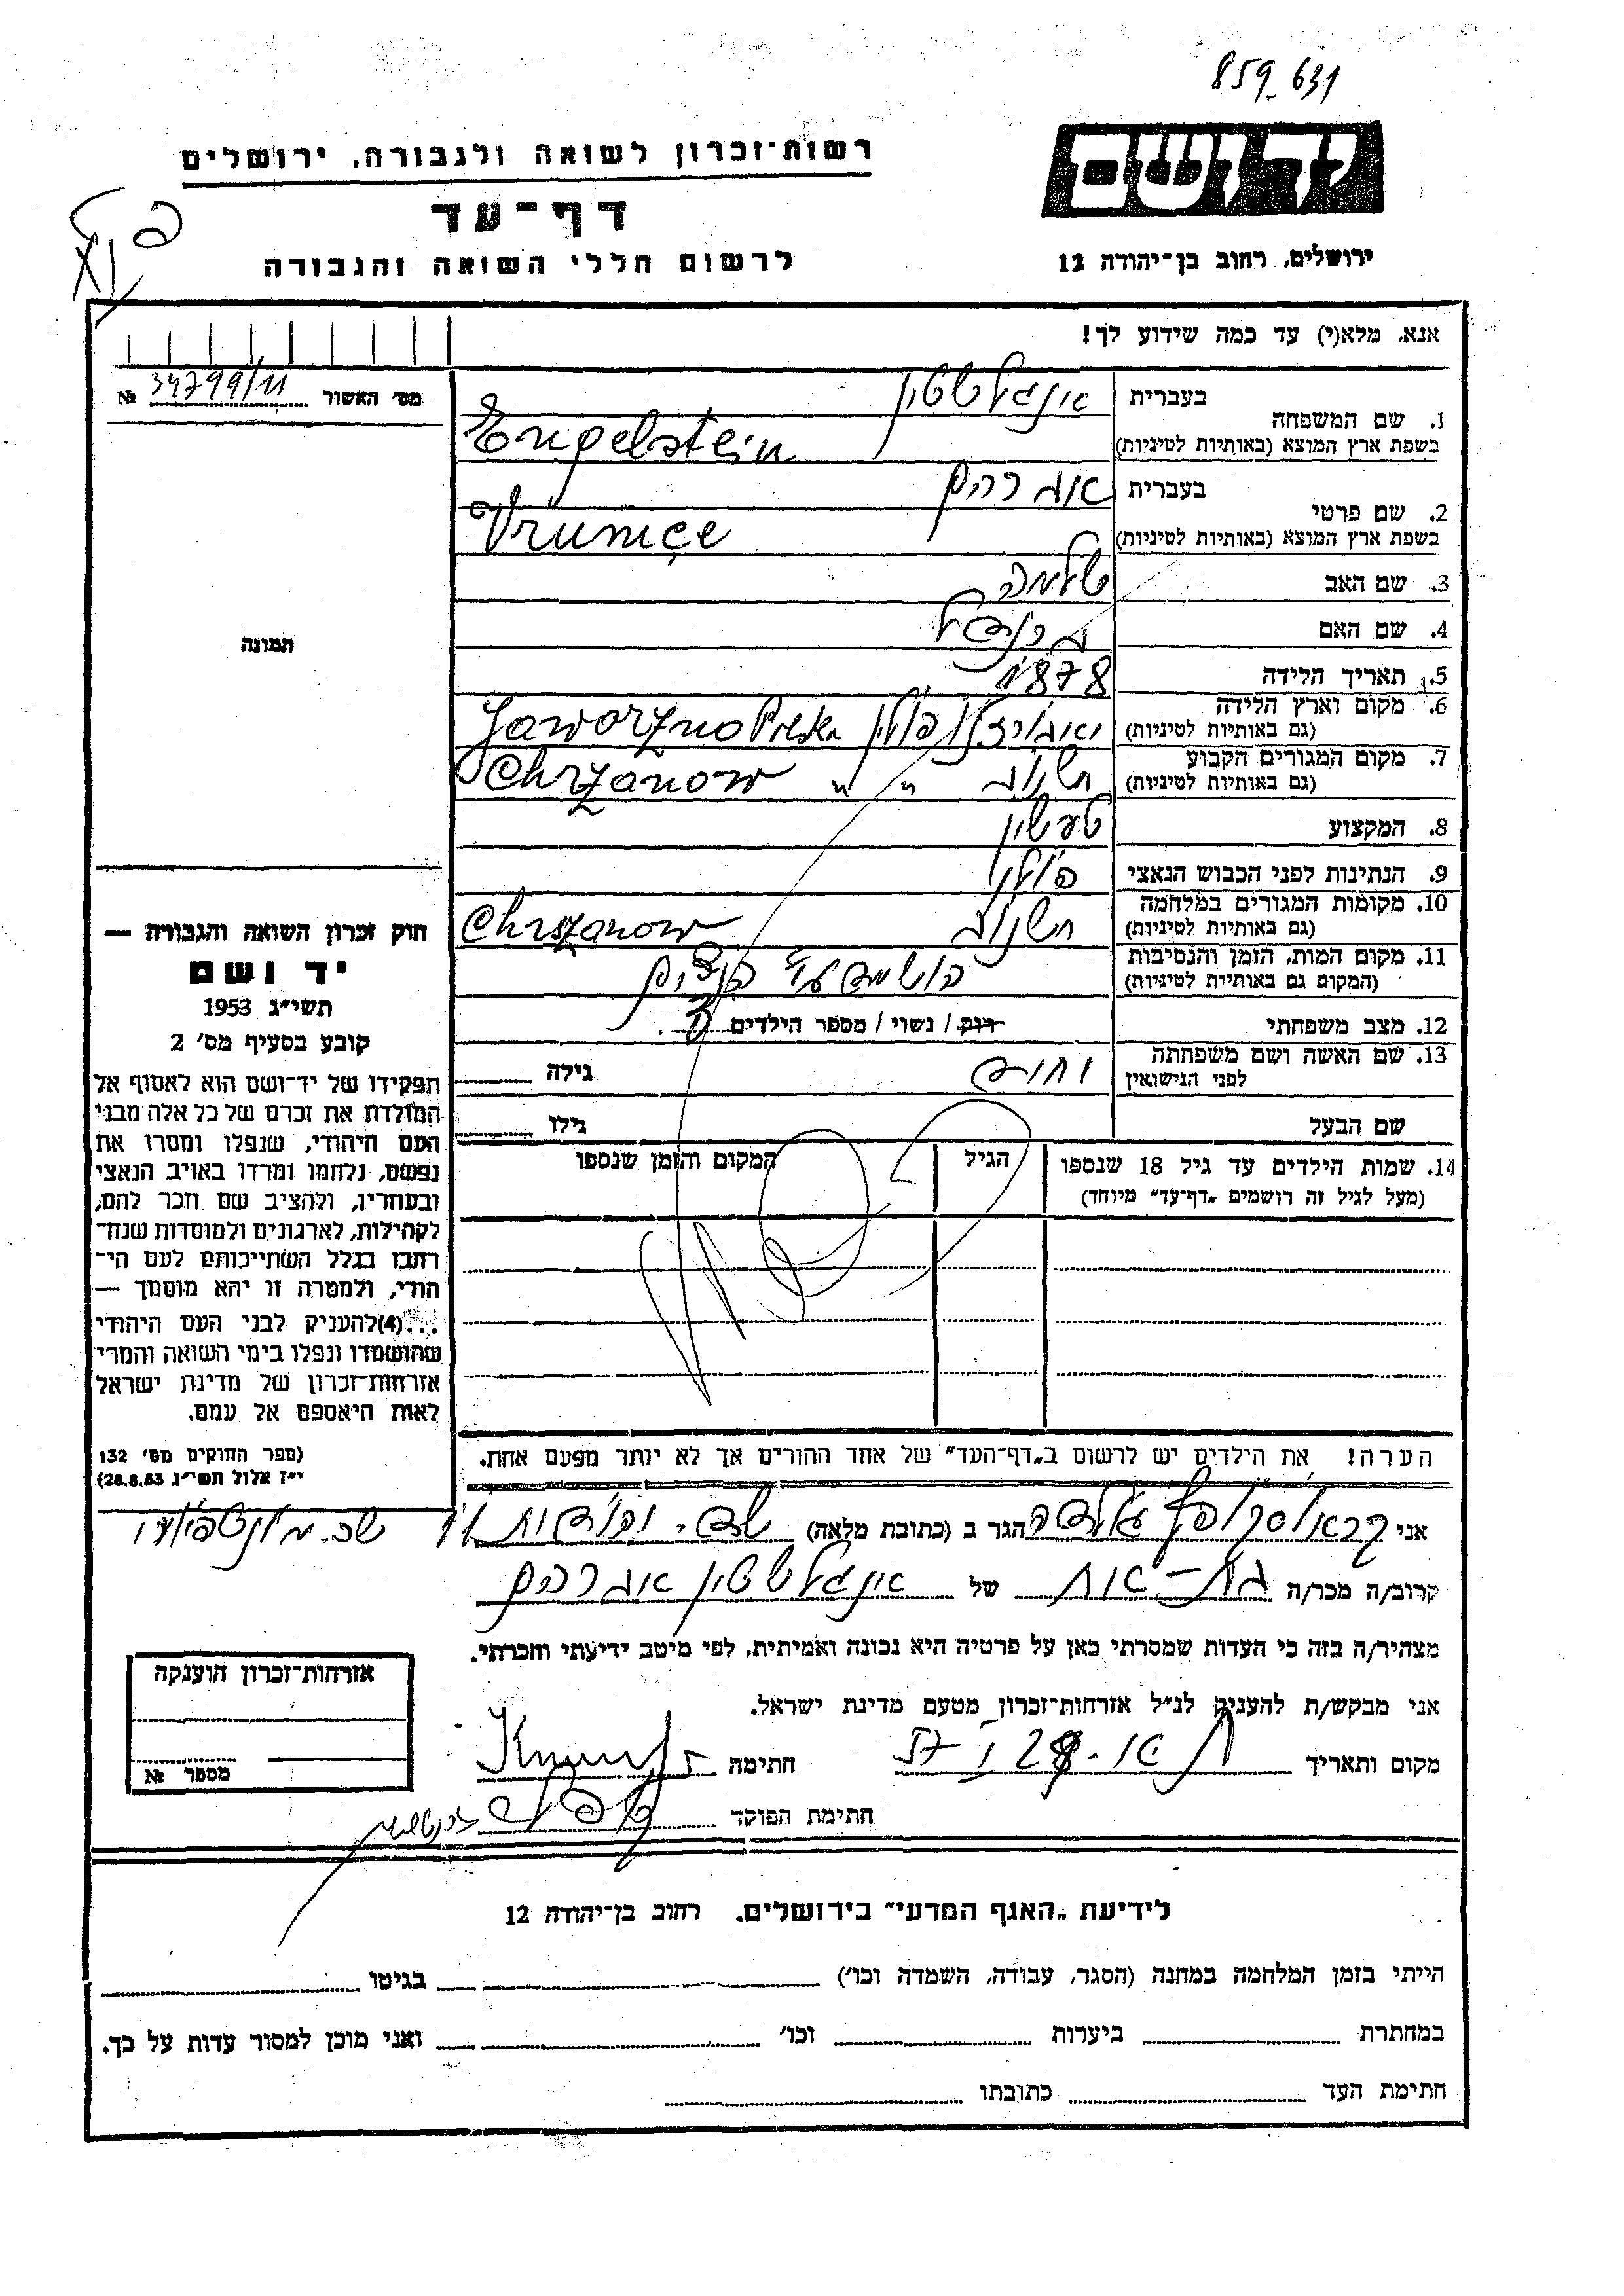 859_631
יד ושם
רשות-זכרון לשואה ולגבורה, ירושלים
דף-עד
לרשום חללי השואה והגבורה
ירושלים, רחוב בן-יהודה 12
אנא, מלא(י) עד כמה שידוע לך!
מס' האשור 34799/11 №
1. שם המשפחה
בעברית אינגלשטיין
בשפת ארץ המוצא (באותיות לטיניות) Engelstein
2. שם פרטי
בעברית אברהם
בשפת ארץ המוצא (באותיות לטיניות)
3. שם האב שלמה
4. שם האם
5. תאריך הלידה 1878
6. מקום וארץ הלידה
(גם באותיות לטיניות) פולין Jaworzno Polska
7. מקום המגורים הקבוע
(גם באותיות לטיניות) חשנוב " " Chrzanow
8. המקצוע
9. הנתינות לפני הכבוש הנאצי פולני
10. מקומות המגורים במלחמה
(גם באותיות לטיניות) חשנוב Chrszanow
11. מקום המות, הזמן והנסיבות
(המקום גם באותיות לטיניות) הושמד ע"י הנאצים
12. מצב משפחתי רוק / נשוי / מספר הילדים
13. שם האשה ושם משפחתה
לפני הנישואין נחומה גילה
שם הבעל גילו
14. שמות הילדים עד גיל 18 שנספו הגיל המקום והזמן שנספו
(מעל לגיל זה רושמים „דף-עד" מיוחד)
הערה! את הילדים יש לרשום ב„דף-העד" של אחד ההורים אך לא יותר מפעם אחת.
תמונה
חוק זכרון השואה והגבורה —
יד ושם
תשי"ג 1953
קובע בסעיף מס' 2
תפקידו של יד-ושם הוא לאסוף אל
המולדת את זכרם של כל אלה מבני
העם היהודי, שנפלו ומסרו את
נפשם, נלחמו ומרדו באויב הנאצי
ובעוזריו, ולהציב שם וזכר להם,
לקהילות, לארגונים ולמוסדות שנח-
רבו בגלל השתייכותם לעם הי-
הודי, ולמטרה זו יהא מוסמך —
...(4)להעניק לבני העם היהודי
שהושמדו ונפלו בימי השואה והמרי
אזרחות-זכרון של מדינת ישראל
לאות היאספם אל עמם.
(ספר החוקים מס' 132
י"ז אלול תשי"ג 28.8.53)
אני הגר ב (כתובת מלאה) שד. שכ. מונטפיורי
קרוב/ה מכר/ה בת-אח של אינגלשטיין אברהם
מצהיר/ה בזה כי העדות שמסרתי כאן על פרטיה היא נכונה ואמיתית, לפי מיטב ידיעתי והכרתי.
אני מבקש/ת להעניק לנ"ל אזרחות-זכרון מטעם מדינת ישראל.
מקום ותאריך חתימה
חתימת הפוקד
אזרחות-זכרון הוענקה
מספר №
לידיעת „האגף המדעי" בירושלים, רחוב בן-יהודה 12
הייתי בזמן המלחמה במחנה (הסגר, עבודה, השמדה וכו') בגיטו
במחתרת ביערות וכו' ואני מוכן למסור עדות על כך.
חתימת העד כתובתו